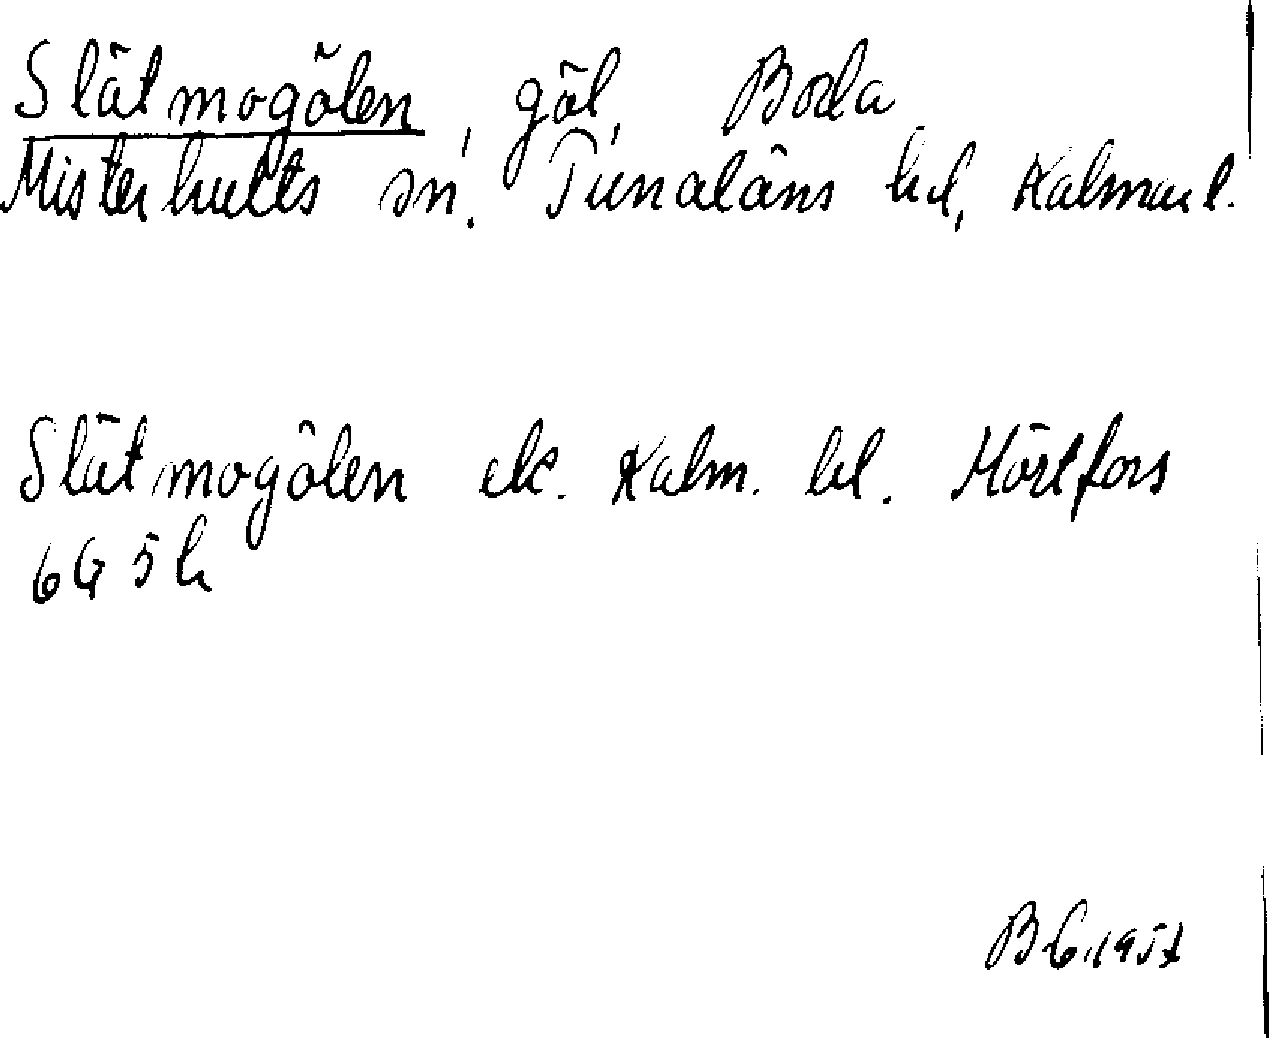 Slätmogölen, göl, Boda
Misterhults sn. Tunaläns hd, Kalmar l.
Slätmogölen ek. Kalm. bl. Mörtfors
6G 5h